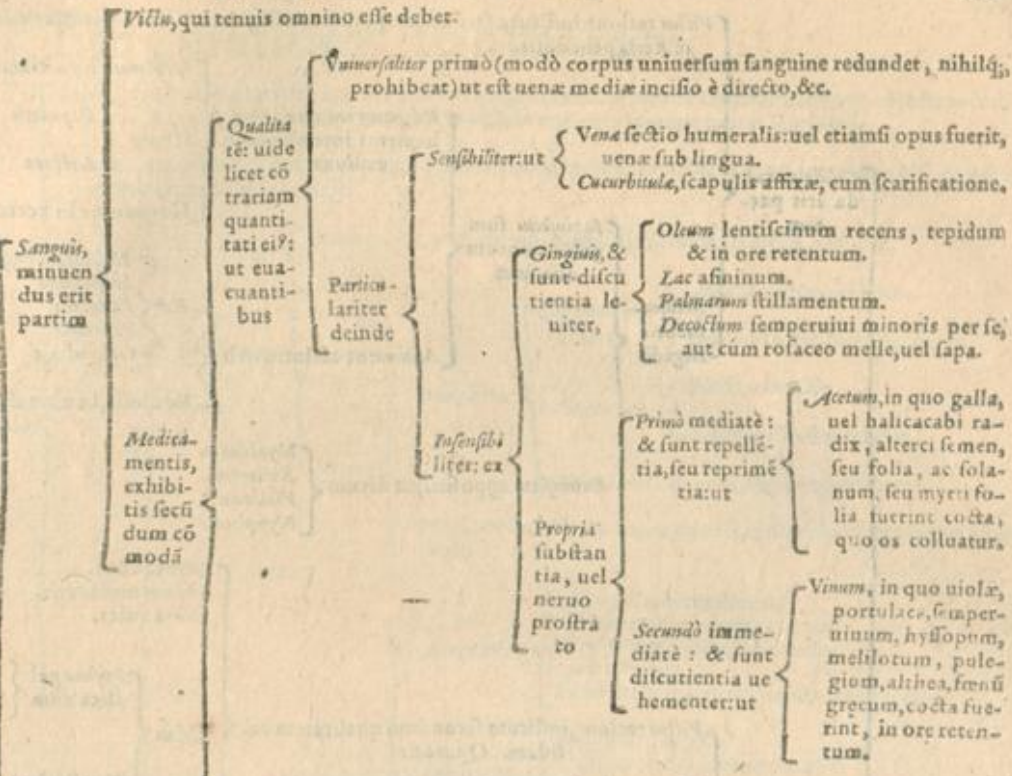 Victu, qui tenuis omnino esse debet.
Sanguis,
minuen
dus erit
partim
Medica-
mentis,
exhibi-
tis secū
dum cō
modā
Qualita
tē: uide
licet cō
trariam
quanti-
tati eiꝰ:
ut eua-
cuanti-
bus
Vniuersaliter primò (modò corpus uniuersum sanguine redundet, nihilq́;,
prohibeat) ut est uenæ mediæ incisio è directo, &c.
Particu-
lariter
deinde
Sensibiliter: ut
Venæ sectio humeralis: uel etiamsi opus fuerit,
uenæ sub lingua.
Cucurbitulæ, scapulis affixæ, cum scarificatione.
Insensibi
liter: ex
Gingiuis, &
sunt discu
tientia le-
uiter,
Oleum lentiscinum recens, tepidum
& in ore retentum.
Lac asininum.
Palmarum stillamentum.
Decoctum semperuiui minoris per se,
aut cúm rosaceo melle, uel sapa.
Propria
substan
tia, uel
neruo
prostra
to
Primò mediatè:
& sunt repellē-
tia, seu reprimē
tia: ut
Acetum, in quo galla,
uel halicacabi ra-
dix, alterci semen,
seu folia, ac sola-
num, seu myrti fo-
lia fuerint cocta,
quo os colluatur.
Secundò imme-
diatè: & sunt
discutientia ue
hementer: ut
Vinum, in quo uiolæ,
portulace, semper-
uiuum, hyssopum,
melilotum, pule-
gium, althea, fœnū
grecum, cocta fue-
rint, in ore reten-
tum.